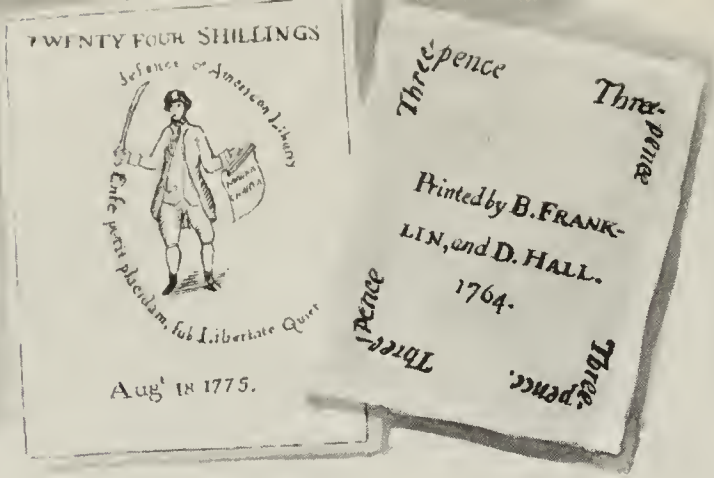 TWENTY FOUR SHILLINGS
defence of American Liberty
Ense petit placidam, sub Libertate Quiet
MAGNA
CHARTA
Augt 18 1775.
Threepence
Three-
pence
Printed by B. FRANK-
LIN, and D. HALL.
1764.
Three-
pence
Three-
pence.